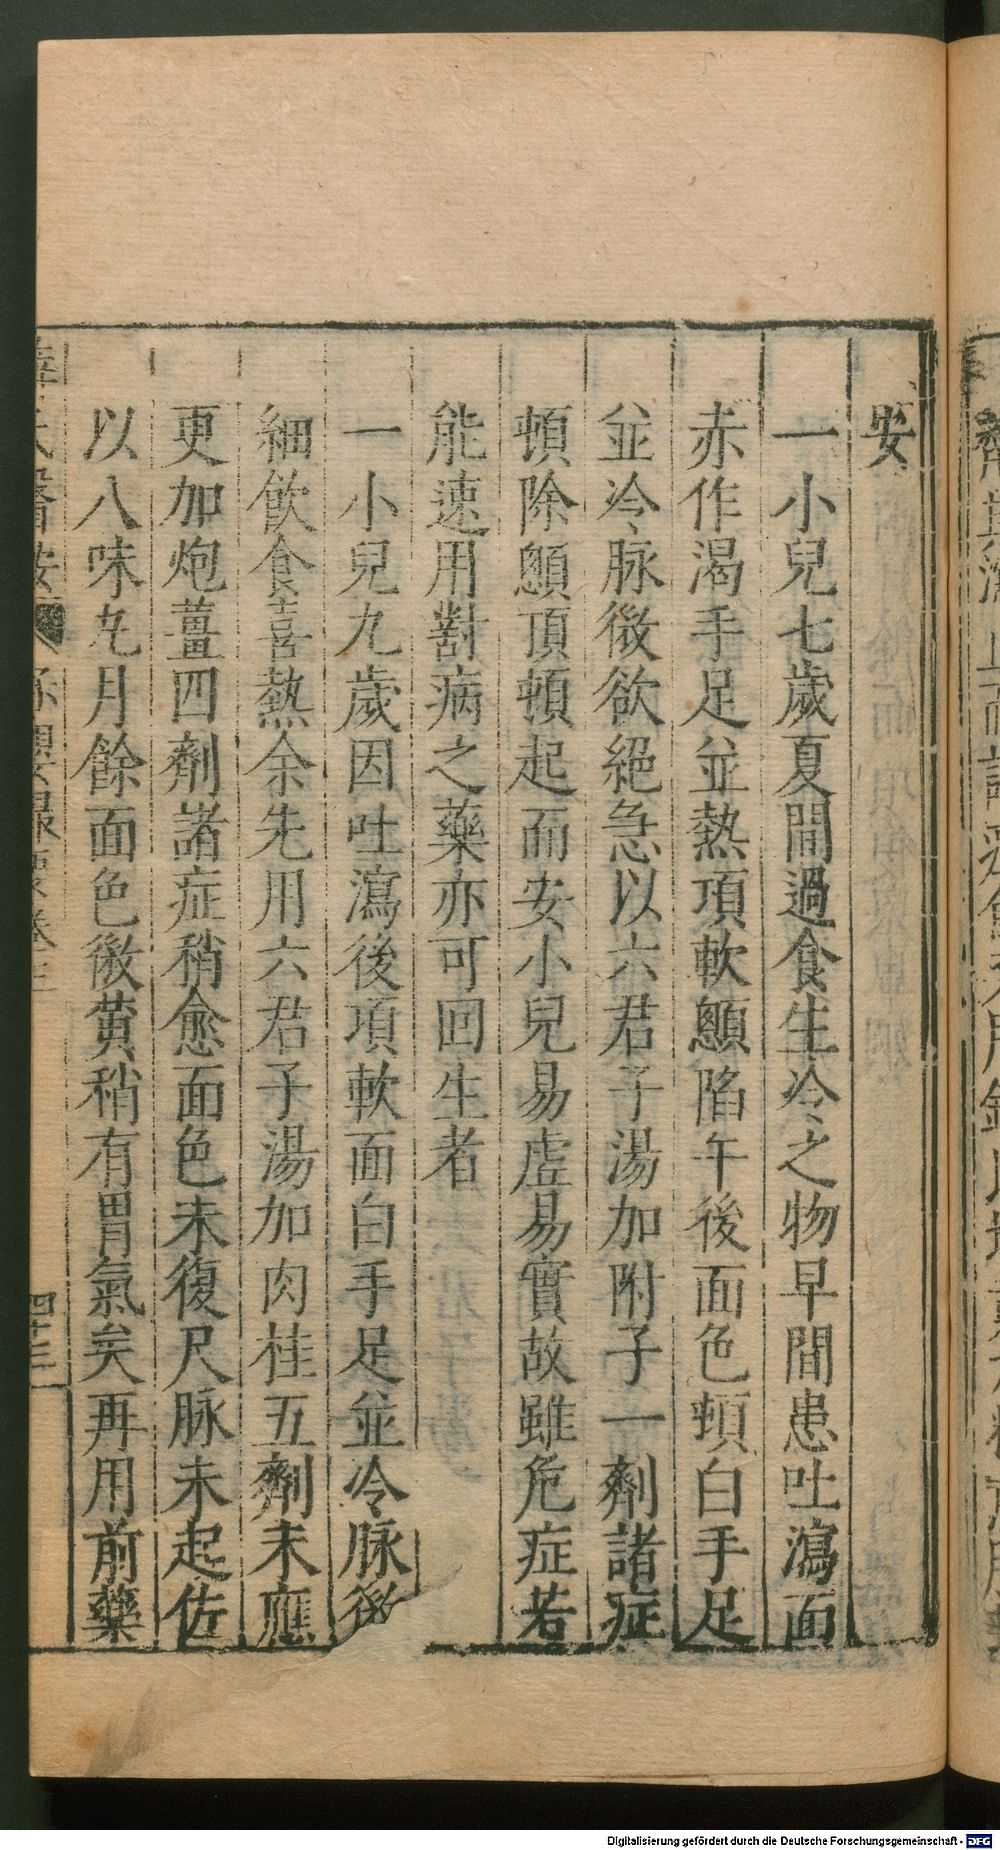 安
一小兒七歲夏間過食生冷之物早間患吐瀉面
赤作渴手足並熱項軟顖陷午後面色頓白手足
並冷脉微欲絕急以六君子湯加附子一劑諸症
頓除顖頂頓起而安小兒易虛易實故雖危症若
能速用對病之藥亦可回生者
一小兒九歲因吐瀉後項軟面白手足並冷脉微
細飲食喜熱余先用六君子湯加肉桂五劑未應
更加炮薑四劑諸症稍愈面色未復尺脉未起佐
以八味丸月餘面色微黃稍有胃氣矣再用前藥
薛氏醫按 保嬰撮要卷三 四十三
Digitalisierung gefördert durch die Deutsche Forschungsgemeinschaft - DFG